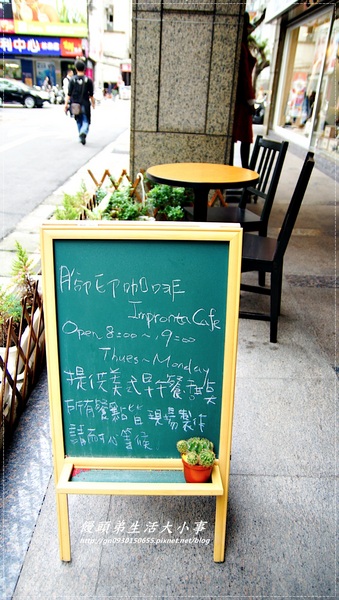 利中心
腳印咖啡
Impronta Cafe
Open 8:00~19:00
Thues~Monday
提供美式早午餐輕點
所有餐點皆現場製作
請耐心等候
饅頭弟生活大小事
http://gu0930150655.pixnet.net/blog